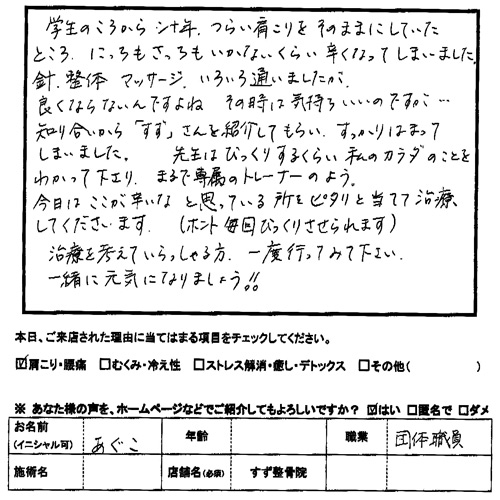 学生のころから 二十年、つらい肩こりを そのままにしていた
ところ、にっちもさっちも いかないくらい 辛くなって しまいました。
針、整体 マッサージ、いろいろ通いましたが、
良くならないんですよね その時は気持ちいいのですが…
知り合いから「すず」さんを紹介してもらい、すっかりはまって
しまいました。 先生はびっくりするくらい 私のカラダのことを
わかって下さり、まるで専属のトレーナーのよう。
今日はここが辛いな と思っている所を ピタリと当てて治療
してくださいます。(ホント 毎回びっくりさせられます)
治療を考えていらっしゃる方、一度行ってみて下さい。
一緒に元気になりましょう!!
本日、ご来店された理由に当てはまる項目をチェックしてください。
☑肩こり・腰痛 □むくみ・冷え性 □ストレス解消・癒し・デトックス □その他( )
※ あなた様の声を、ホームページなどでご紹介してもよろしいですか? ☑はい □匿名で □ダメ
お名前 (イニシャル可) あぐこ 年齢 職業 団体職員
施術名 店舗名(必須) すず整骨院